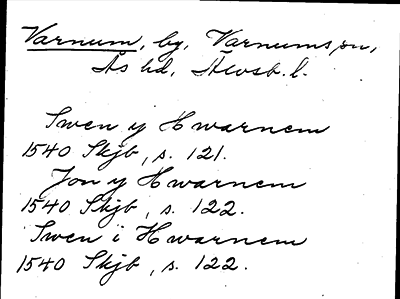 Varnum, by, Varnums sn,
Ås hd, Älvsb. l.
Swen y Hwarnem
1540 Skjb, s. 121.
Jon y Hwarnem
1540 Skjb, s. 122.
Swen i Hwarnem
1540 Skjb, s. 122.